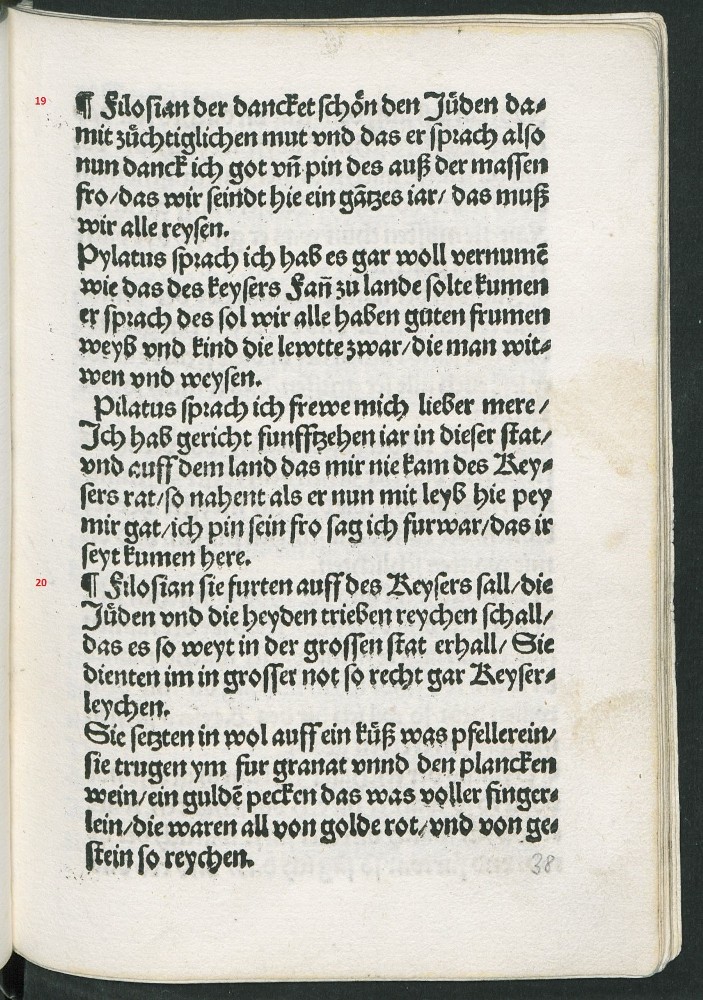 19
¶ Filosian der dancket schoͤn den Juͤden da⸗
mit zuͤchtiglichen mut vnd das er sprach also
nun danck ich got vñ pin des auß der massen
fro/das wir seindt hie ein gãtzes iar/ das muß
wir alle reysen.
Pylatus sprach ich hab es gar woll vernumẽ
wie das des keysers Fañ zu lande solte kumen
er sprach des sol wir alle haben guten frumen
weyb vnd kind die lewtte zwar/die man wit⸗
wen vnd weysen.
Pilatus sprach ich frewe mich lieber mere/
Ich hab gericht funfftzehen iar in dieser stat/
vnd auff dem land das mir nie kam des Key⸗
sers rat/so nahent als er nun mit leyb hie pey
mir gat/ich pin sein fro sag ich furwar/das ir
seyt kumen here.
20
¶ Filosian sie furten auff des Keysers sall/die
Juͤden vnd die heyden trieben reychen schall/
das es so weyt in der grossen stat erhall/ Sie
dienten im in grosser not so recht gar Keyser⸗
leychen.
Sie setzten in wol auff ein kuͤß was pfellerein/
sie trugen ym fur granat vnnd den plancken
wein/ein guldẽ pecken das was voller finger⸗
lein/die waren all von golde rot/vnd von ge⸗
stein so reychen.
38